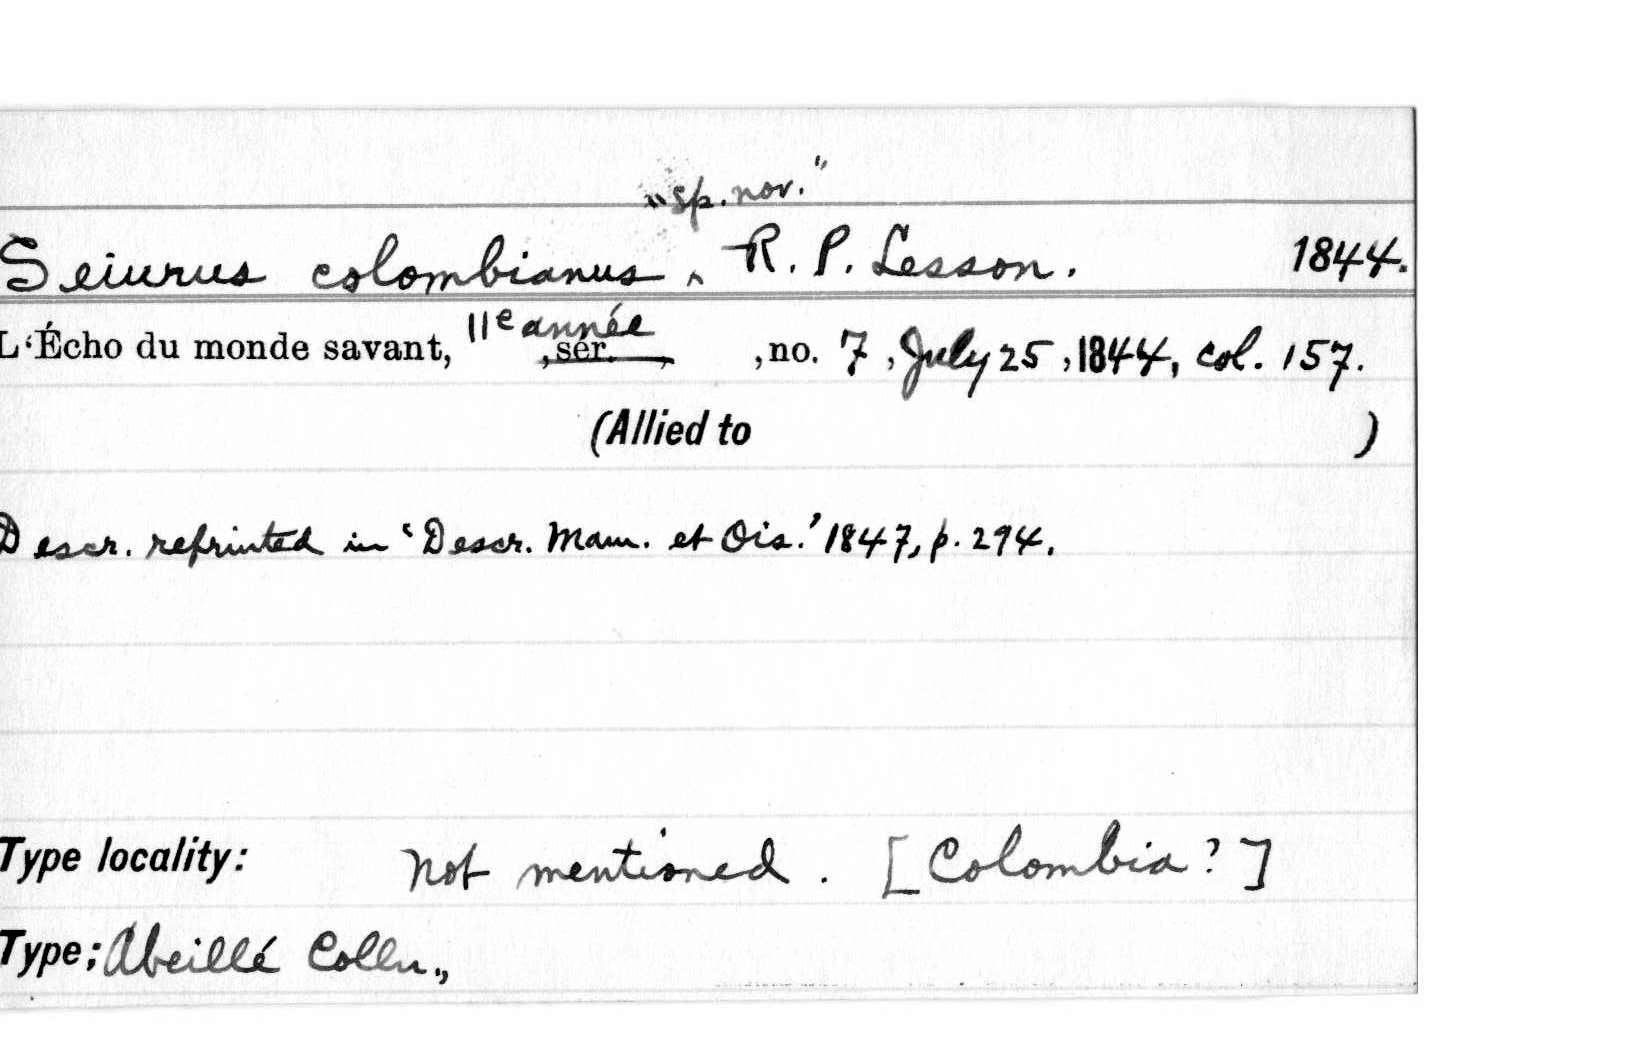 "sp. nov."
Seiurus colombianus ‸ R. P. Lesson. 1844.
L'Écho du monde savant, 11e année ,sér. , ,no. 7 , July 25 ,1844, col. 157.
(Allied to )
Descr. reprinted in 'Descr. Mam. et Ois.' 1847, p. 294.
Type locality: Not mentioned. [Colombia?]
Type; Abeillé Colln.,